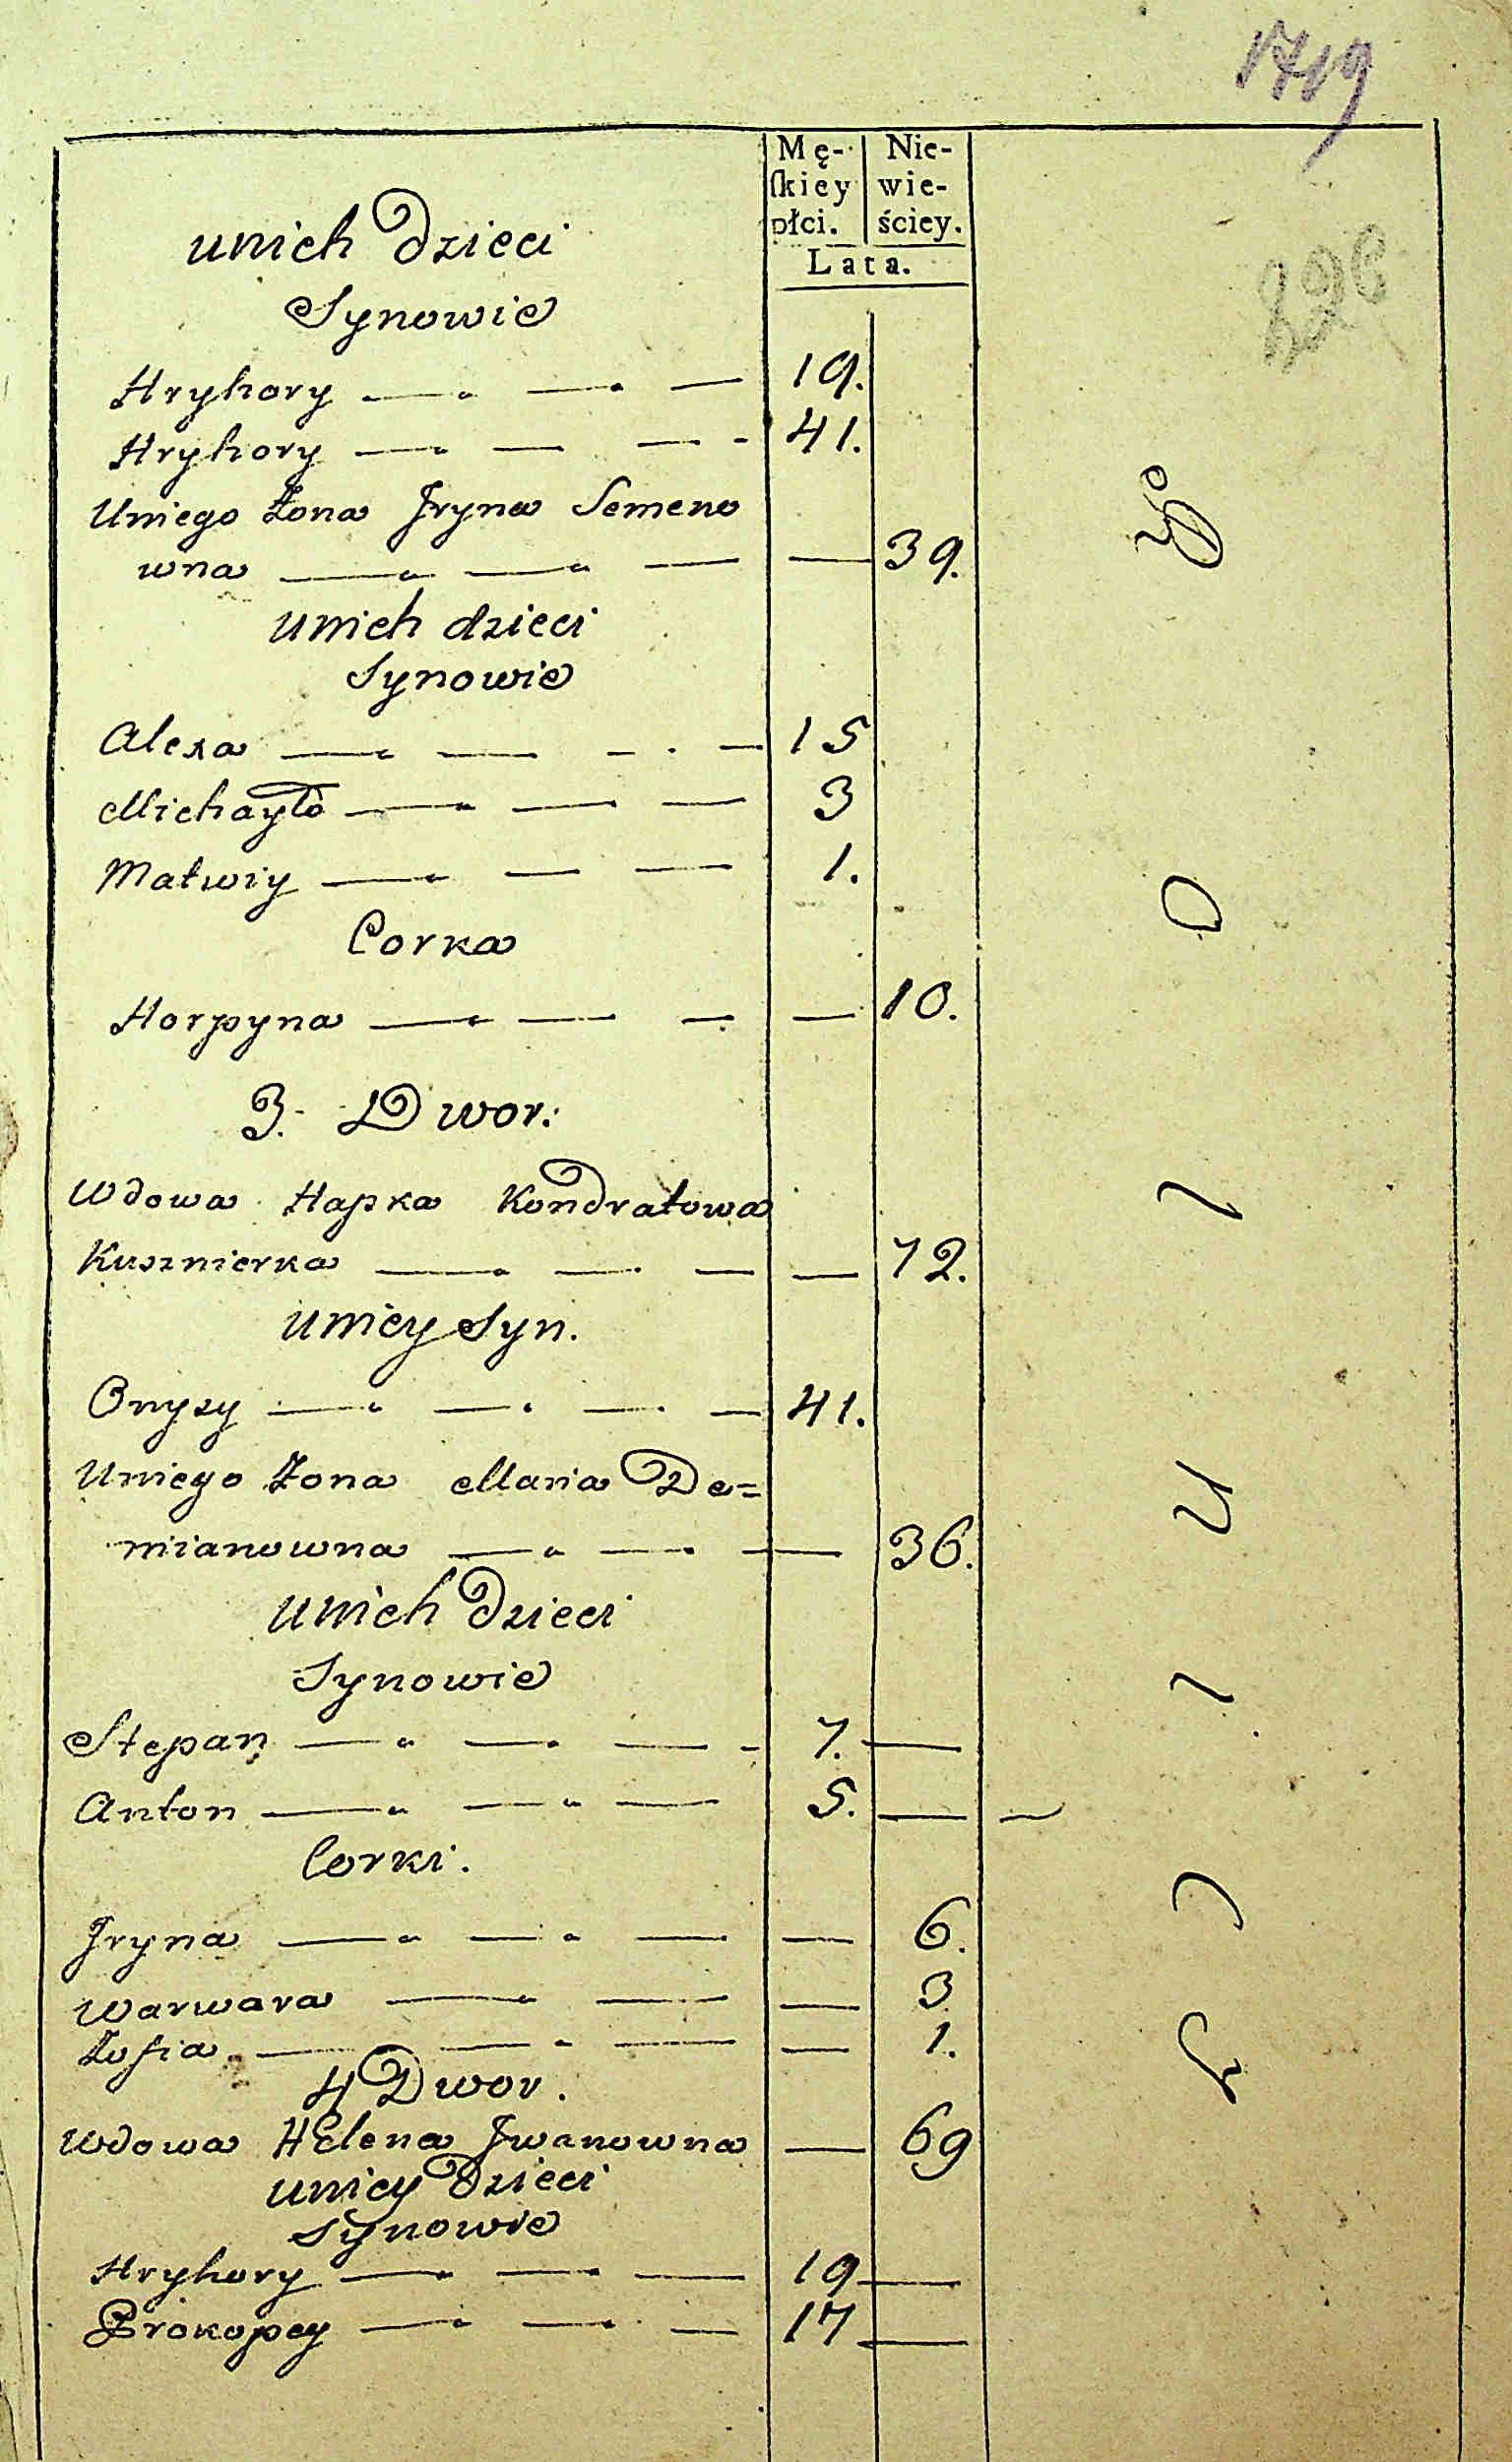 1719
Mę- Nie-
ſkiey wie-
płci. ściey.
Lata.
unich Dzieci
Synowie
Hryhory 19.
Hryhory 41.
Uniego Żona Jryna Semeno
wna 39.
unich dzieci
Synowie
Alexa 15
Michayło 3
Matwiy 1.
Corka
Horpyna 10.
3. Dwor.
Wdowa Hapka Kondratowa
Kusznierka 72.
uniey Syn.
Onyzy 41.
Uniego Żona Maria De=
mianowna 36.
unich Dzieci
Synowie
Stepan 7.
Anton 5.
Corki.
Jryna 6.
Warwara 3
Zofia 1.
4 Dwor.
Wdowa Helena Jwanowna 69
uniey Dzieci
Synowie
Hryhory 19
Prokopey 17